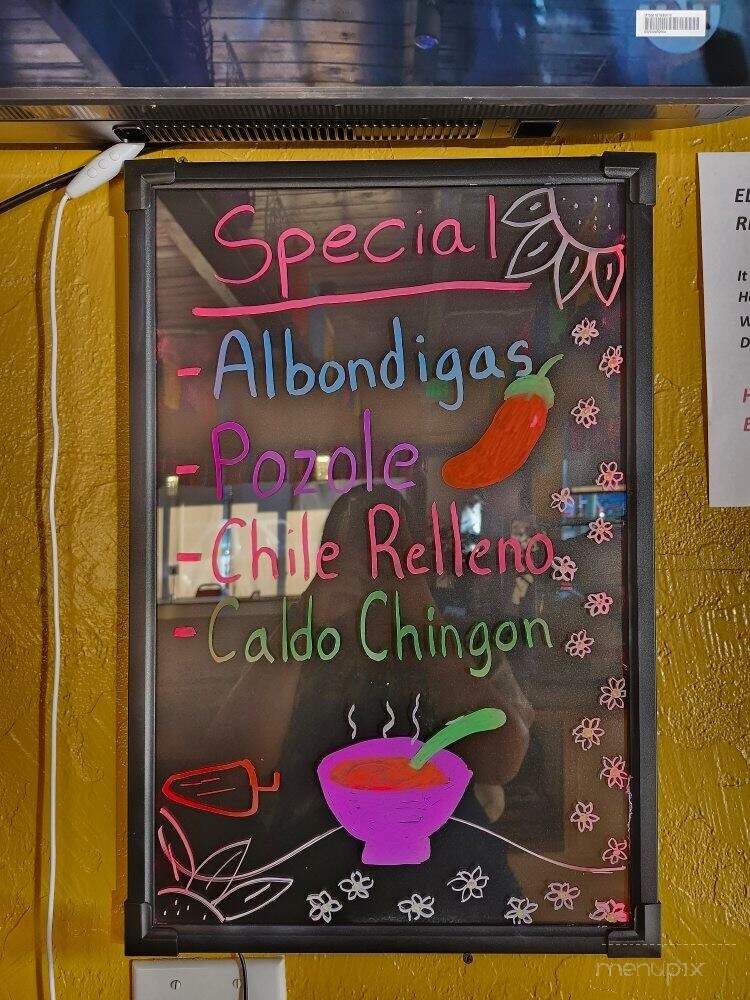 Special
- Albondigas
- Pozole
- Chile Relleno
- Caldo Chingon
It
menupix